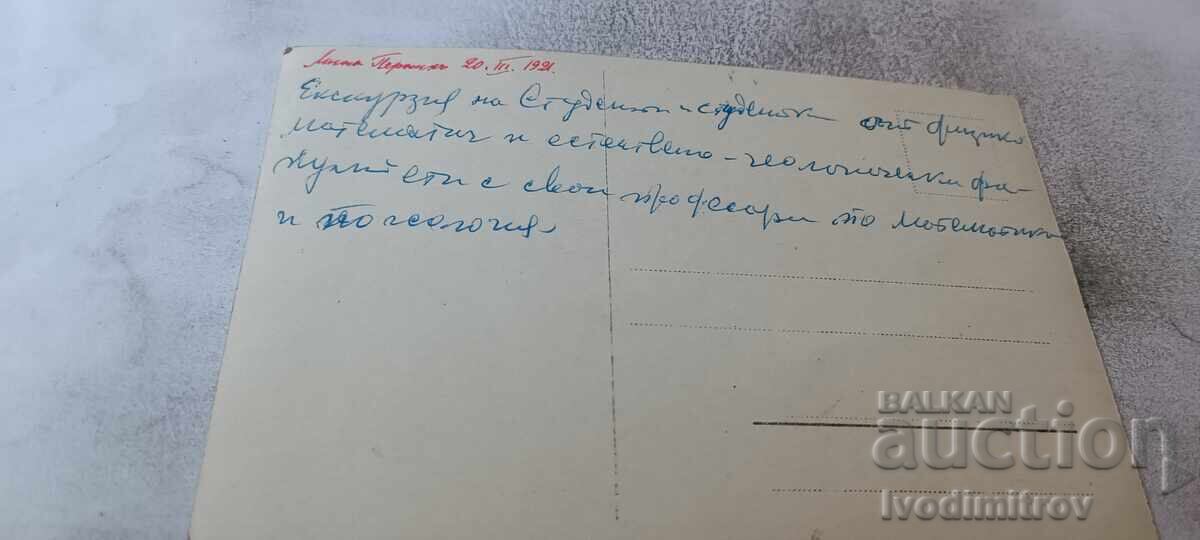 Мина Перникъ 20.III.1921.
Екскурзия на Студенти и студентки от физико
математич и естествено-геологически фа-
култети с свои професори по математика
и по геология
BALKAN
auction
Ivodimitrov